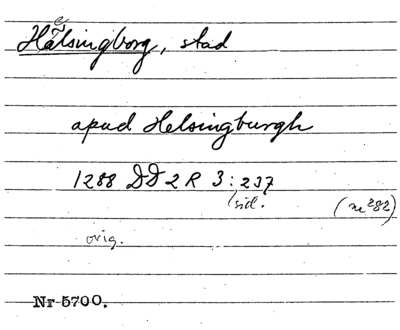 Hälsingborg, stad
e
apud Helsingburgh
1288 DD 2 R 3:237
sid. (nr 282)
orig.
Nr 5700.